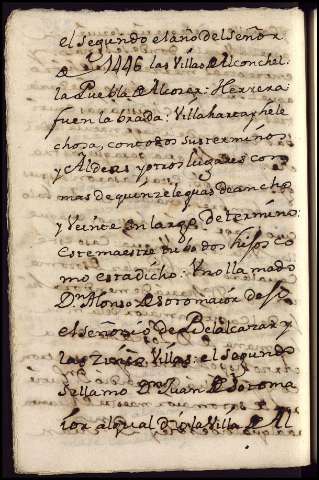 el segundo el año del señor
de 1446 las Villas de Alconchel:
la Puebla de Alcozer: Herrera:
fuen labrada: Villaharta y hele
chosa, con todos sus terminos
y Aldeas y otros lugares con
mas de quinze leguas de ancho
y Veinte en largo De termino:
este maestre tubo dos hijos co
mo esta dicho: Uno llamado
Dn Alonso de sotomaior
el señorio de Belalcazar y
las Villas: el segundo
se llamo Dn Juan de sotoma
ior al qual dio la Villa de Al